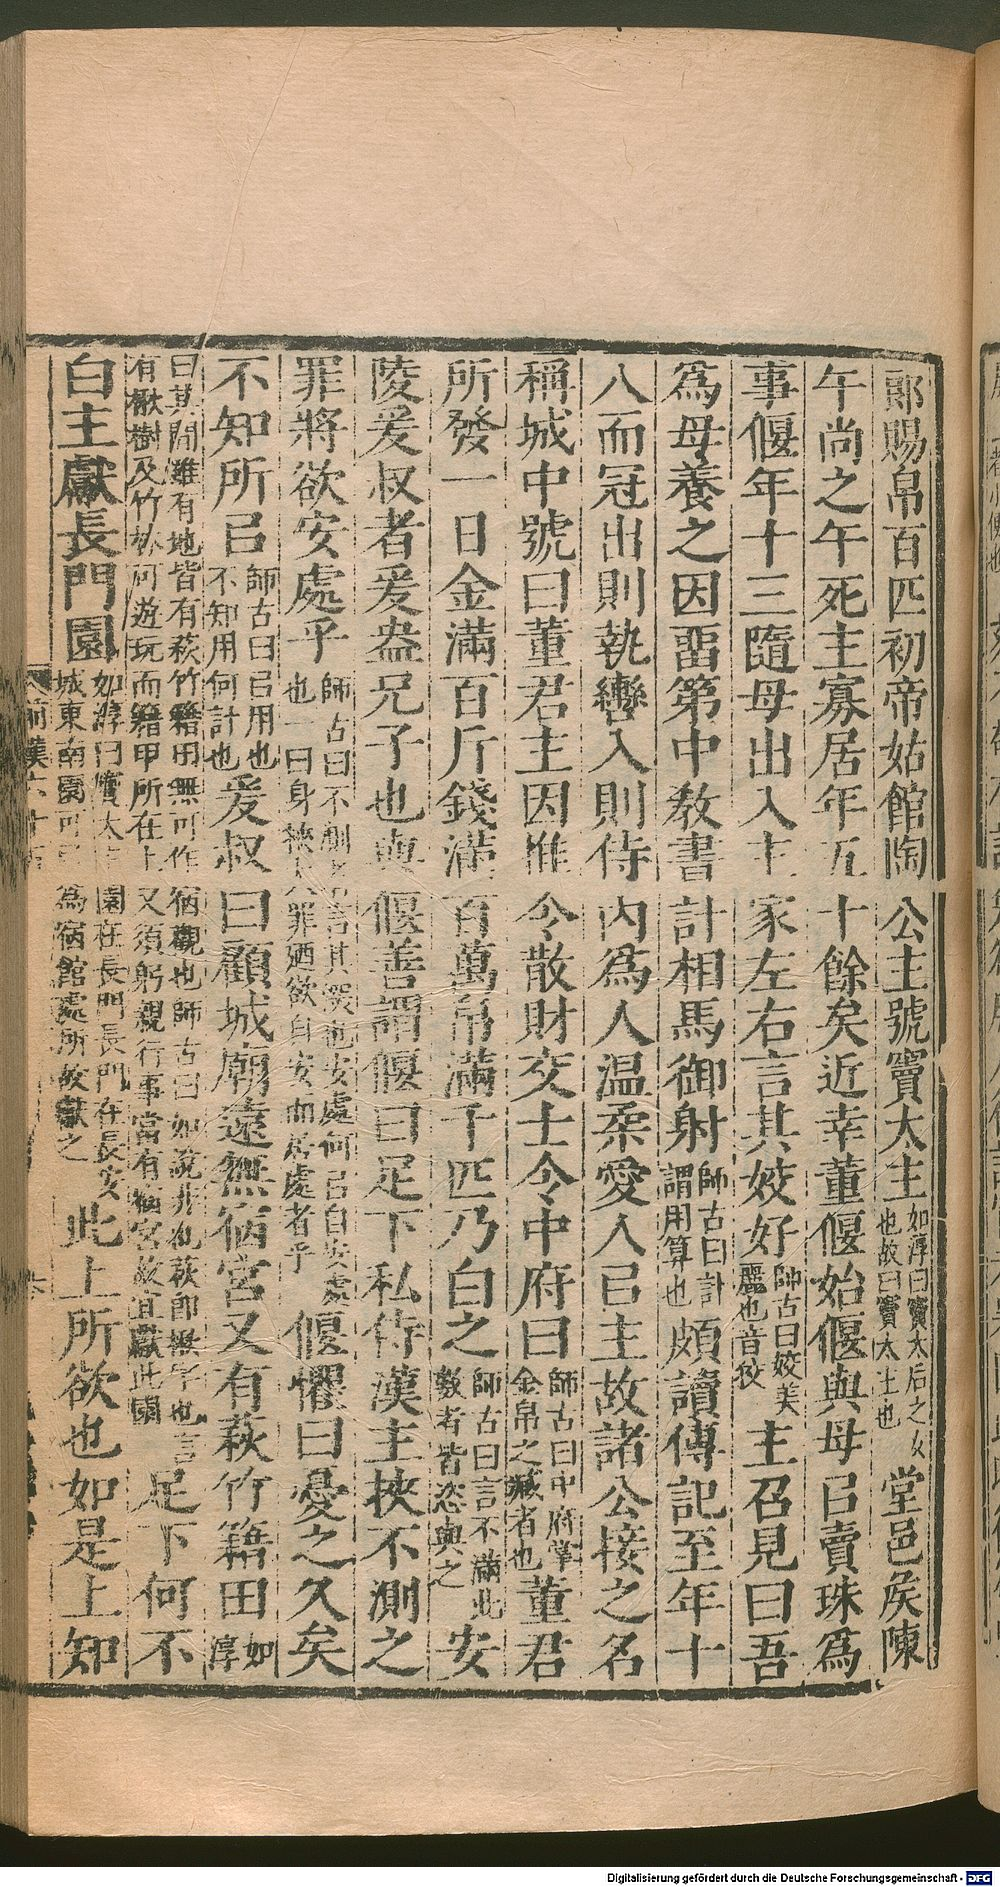 郞賜帛百匹初帝姑館陶公主號竇太主如淳曰竇太后之女也故曰竇太主也堂邑矦陳
午尚之午死主寡居年五十餘矣近幸董偃始偃與母㠯賣珠爲
事偃年十三隨母出入主家左右言其姣好師古曰姣美麗也音狡主召見曰吾
爲母養之因畱第中敎書計相馬御射師古曰計謂用算也頗讀傳記至年十
八而冠出則執轡入則侍內爲人温柔愛人㠯主故諸公接之名
稱城中號曰董君主因推令散財交士令中府曰師古曰中府掌金帛之臧者也董君
所發一日金滿百斤錢滿百萬帛滿千匹乃白之師古曰言不滿此數者皆恣與之安
陵爰叔者爰盎兄子也與偃善謂偃曰足下私侍漢主挾不測之
罪將欲安處乎師古曰不測者言其深也安處何㠯自安處也一曰身挾大罪廼欲自安而居處者乎偃懼曰憂之久矣
不知所㠯師古曰㠯用也不知用何計也爰叔曰顧城廟遠無宿宮又有萩竹籍田如淳
曰其間雖有地皆有萩竹籍田無可作宿觀也師古曰如說非也萩卽楸字也言有楸樹及竹林可遊玩而籍田所在上又須躬親行事當有宿宮故宜獻此園足下何不
白主獻長門園如淳曰竇太主園在長門長門在長安城東南園可㠯爲宿館處所故獻之此上所欲也如是上知
前漢六十五
Digitalisierung gefördert durch die Deutsche Forschungsgemeinschaft - DFG